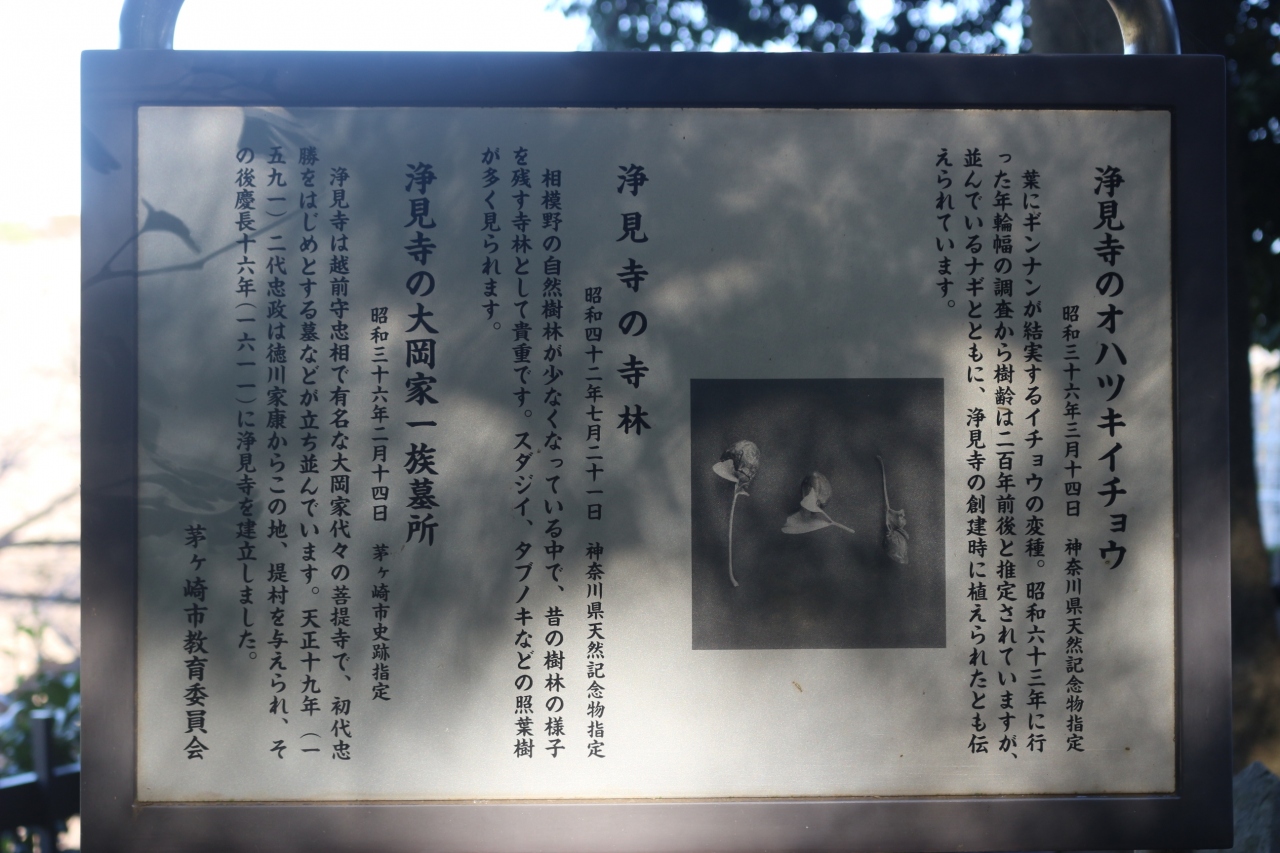 浄見寺のオハツキイチョウ
昭和三十六年三月十四日　神奈川県天然記念物指定
葉にギンナンが結実するイチョウの変種。昭和六十三年に行
った年輪幅の調査から樹齢は二百年前後と推定されていますが、
並んでいるナギとともに、浄見寺の創建時に植えられたとも伝
えられています。
浄見寺の寺林
昭和四十二年七月二十一日　神奈川県天然記念物指定
相模野の自然樹林が少なくなっている中で、昔の樹林の様子
を残す寺林として貴重です。スダジイ、タブノキなどの照葉樹
が多く見られます。
浄見寺の大岡家一族墓所
昭和三十六年二月十四日　茅ヶ崎市史跡指定
浄見寺は越前守忠相で有名な大岡家代々の菩提寺で、初代忠
勝をはじめとする墓などが立ち並んでいます。天正十九年（一
五九一）二代忠政は徳川家康からこの地、堤村を与えられ、そ
の後慶長十六年（一六一一）に浄見寺を建立しました。
茅ヶ崎市教育委員会